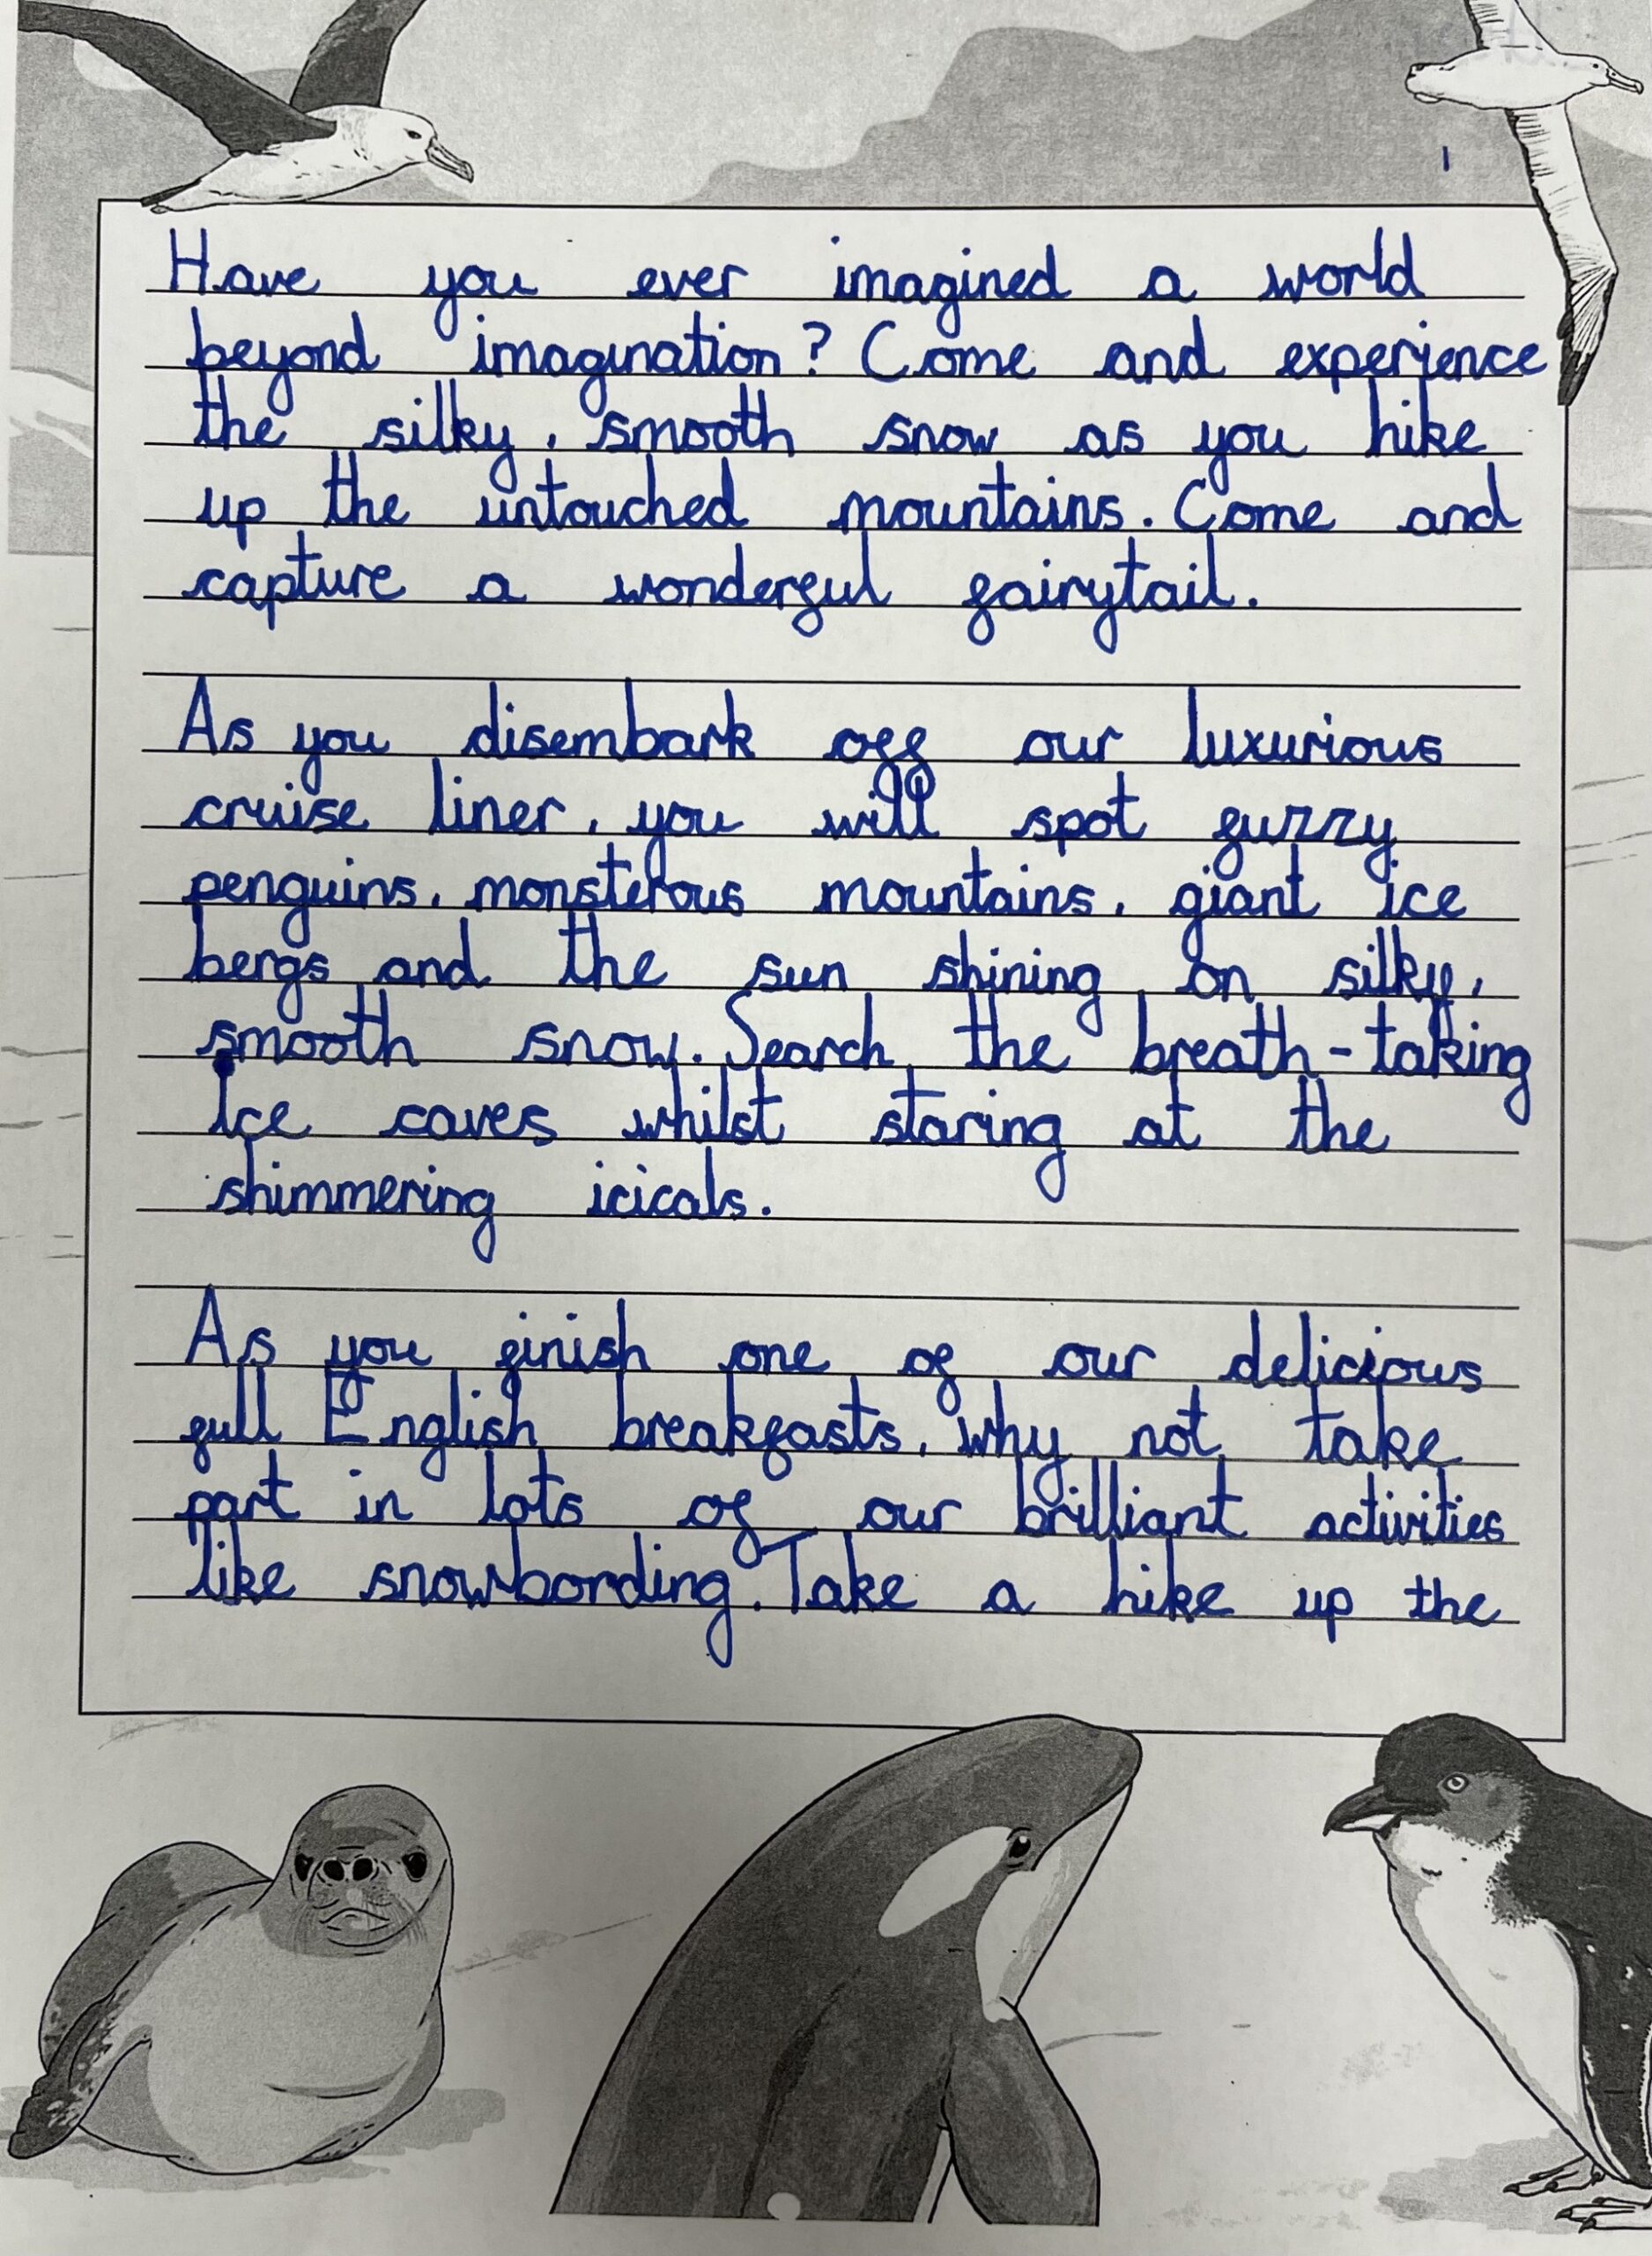 Have you ever imagined a world
beyond imagination? Come and experience
the silky, smooth snow as you hike
up the untouched mountains. Come and
capture a wonderful fairytail.
As you disembark off our luxurious
cruise liner, you will spot furry
penguins, monsterous mountains, giant ice
bergs and the sun shining on silky,
smooth snow. Search the breath-taking
Ice caves whilst staring at the
shimmering icicals.
As you finish one of our delicious
full English breakfasts, why not take
part in lots of our brilliant activities
like snowbording. Take a hike up the